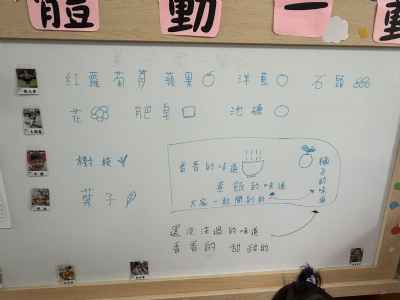 體動一動
紅蘿蔔 蘋果 洋蔥 石頭
花 肥皂 池塘
樹枝
葉子
香香的味道
草飯的味道
大家一起聞到的
橘子的味道
還沒洗過的味道
香香的 甜甜的